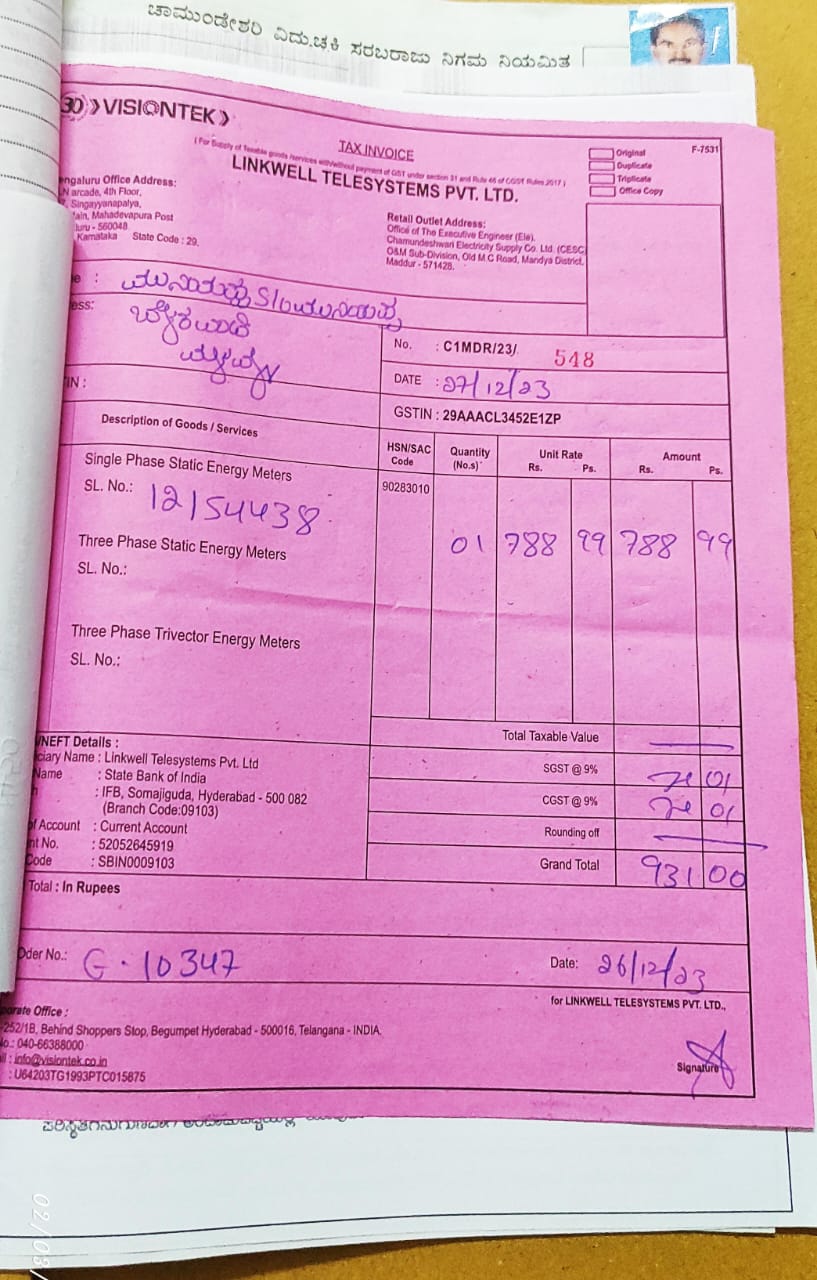 ಚಾಮುಂಡೇಶ್ವರಿ ವಿದ್ಯುಚ್ಛಕ್ತಿ ಸರಬರಾಜು ನಿಗಮ ನಿಯಮಿತ
VISIONTEK
TAX INVOICE
( For Supply of Taxable goods /services with/without payment of GST under section 31 and Rule 46 of CGST Rules 2017 )
LINKWELL TELESYSTEMS PVT. LTD.
F-7531
Original
Duplicate
Triplicate
Office Copy
engaluru Office Address:
N arcade, 4th Floor,
Singayyanapalya,
ain, Mahadevapura Post
luru - 560048
Karnataka State Code : 29.
Retail Outlet Address:
Office of The Executive Engineer (Ele),
Chamundeshwari Electricity Supply Co. Ltd. (CESC)
O&M Sub-Division, Old M.C Road, Mandya District,
Maddur - 571428.
e : ಮುನಿಯಪ್ಪ S/o ಮುನಿಯಪ್ಪ
ess:
No. : C1MDR/23/ 548
DATE : 27/12/23
IN :
GSTIN : 29AAACL3452E1ZP
Description of Goods / Services
HSN/SAC Code
Quantity (No.s)
Unit Rate Rs. Ps.
Amount Rs. Ps.
Single Phase Static Energy Meters
90283010
SL. No.: 12154438
01 788 99 788 99
Three Phase Static Energy Meters
SL. No.:
Three Phase Trivector Energy Meters
SL. No.:
Total Taxable Value
/NEFT Details :
ciary Name : Linkwell Telesystems Pvt. Ltd
SGST @ 9% 71 01
Name : State Bank of India
: IFB, Somajiguda, Hyderabad - 500 082
CGST @ 9% 71 01
(Branch Code:09103)
of Account : Current Account
Rounding off
nt No. : 52052645919
Code : SBIN0009103
Grand Total 931 00
Total : In Rupees
Oder No.: G-10347
Date: 26/12/23
for LINKWELL TELESYSTEMS PVT. LTD.,
porate Office :
-252/1B, Behind Shoppers Stop, Begumpet Hyderabad - 500016, Telangana - INDIA.
No.: 040-66388000
il : info@visiontek.co.in
: U64203TG1993PTC015875
Signature